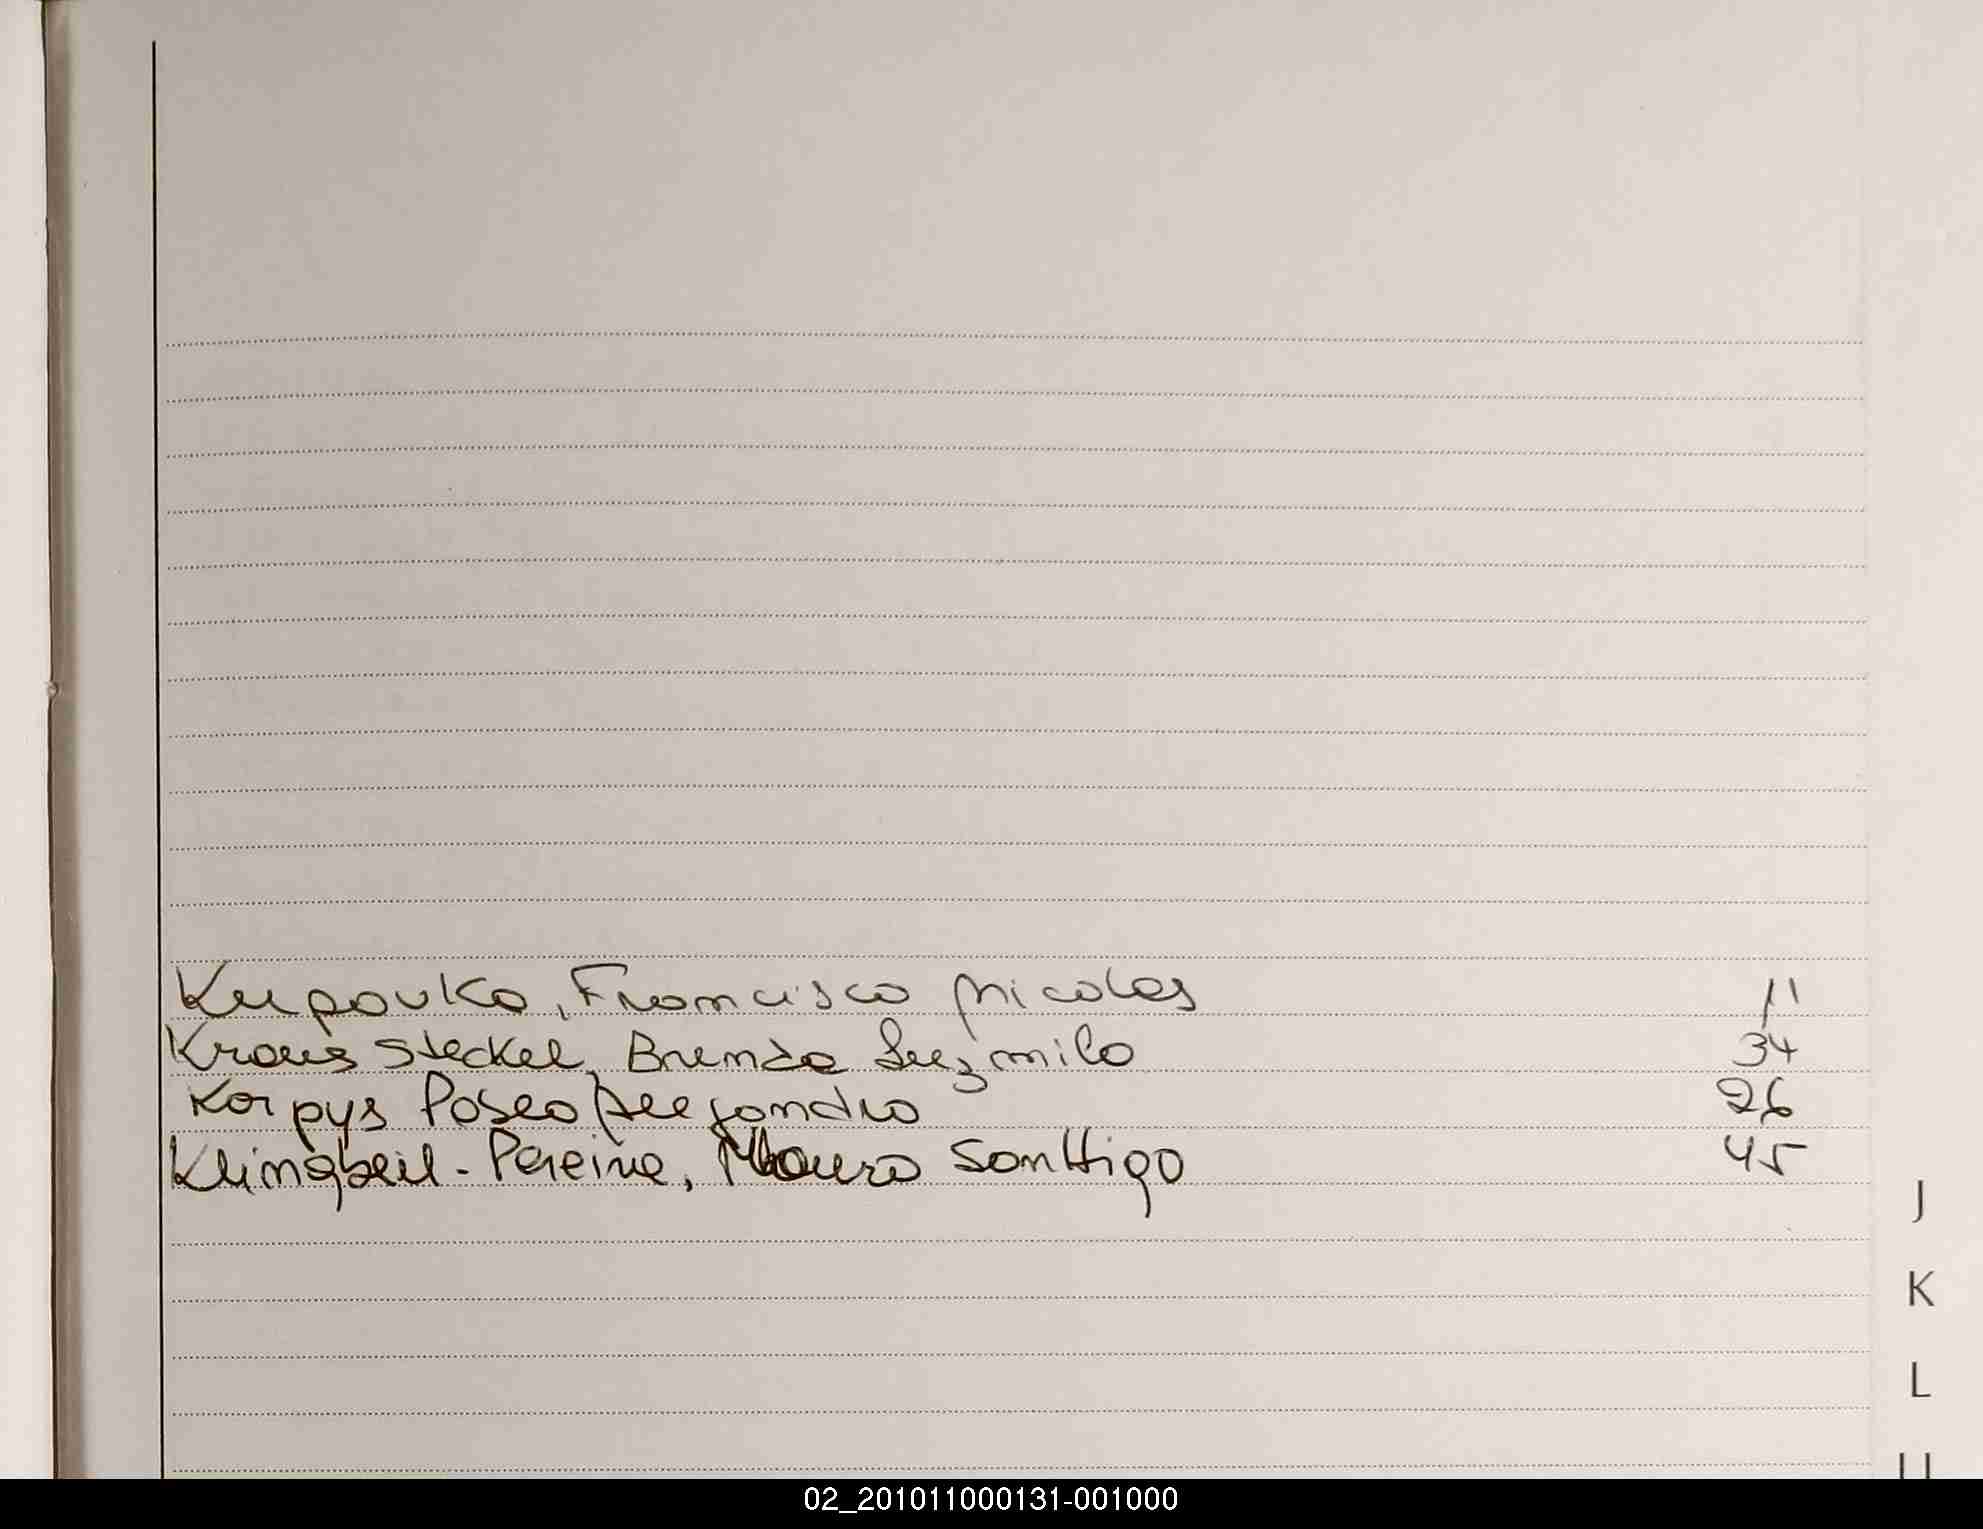 Kupovko, Francisco Nicolas 11
Kraus Steckel, Brenda Luzmila 34
Korpys Poseo Alejandro 26
Klingbeil - Pereira, Mauro Santtigo 45
J
K
L
02_201011000131-001000